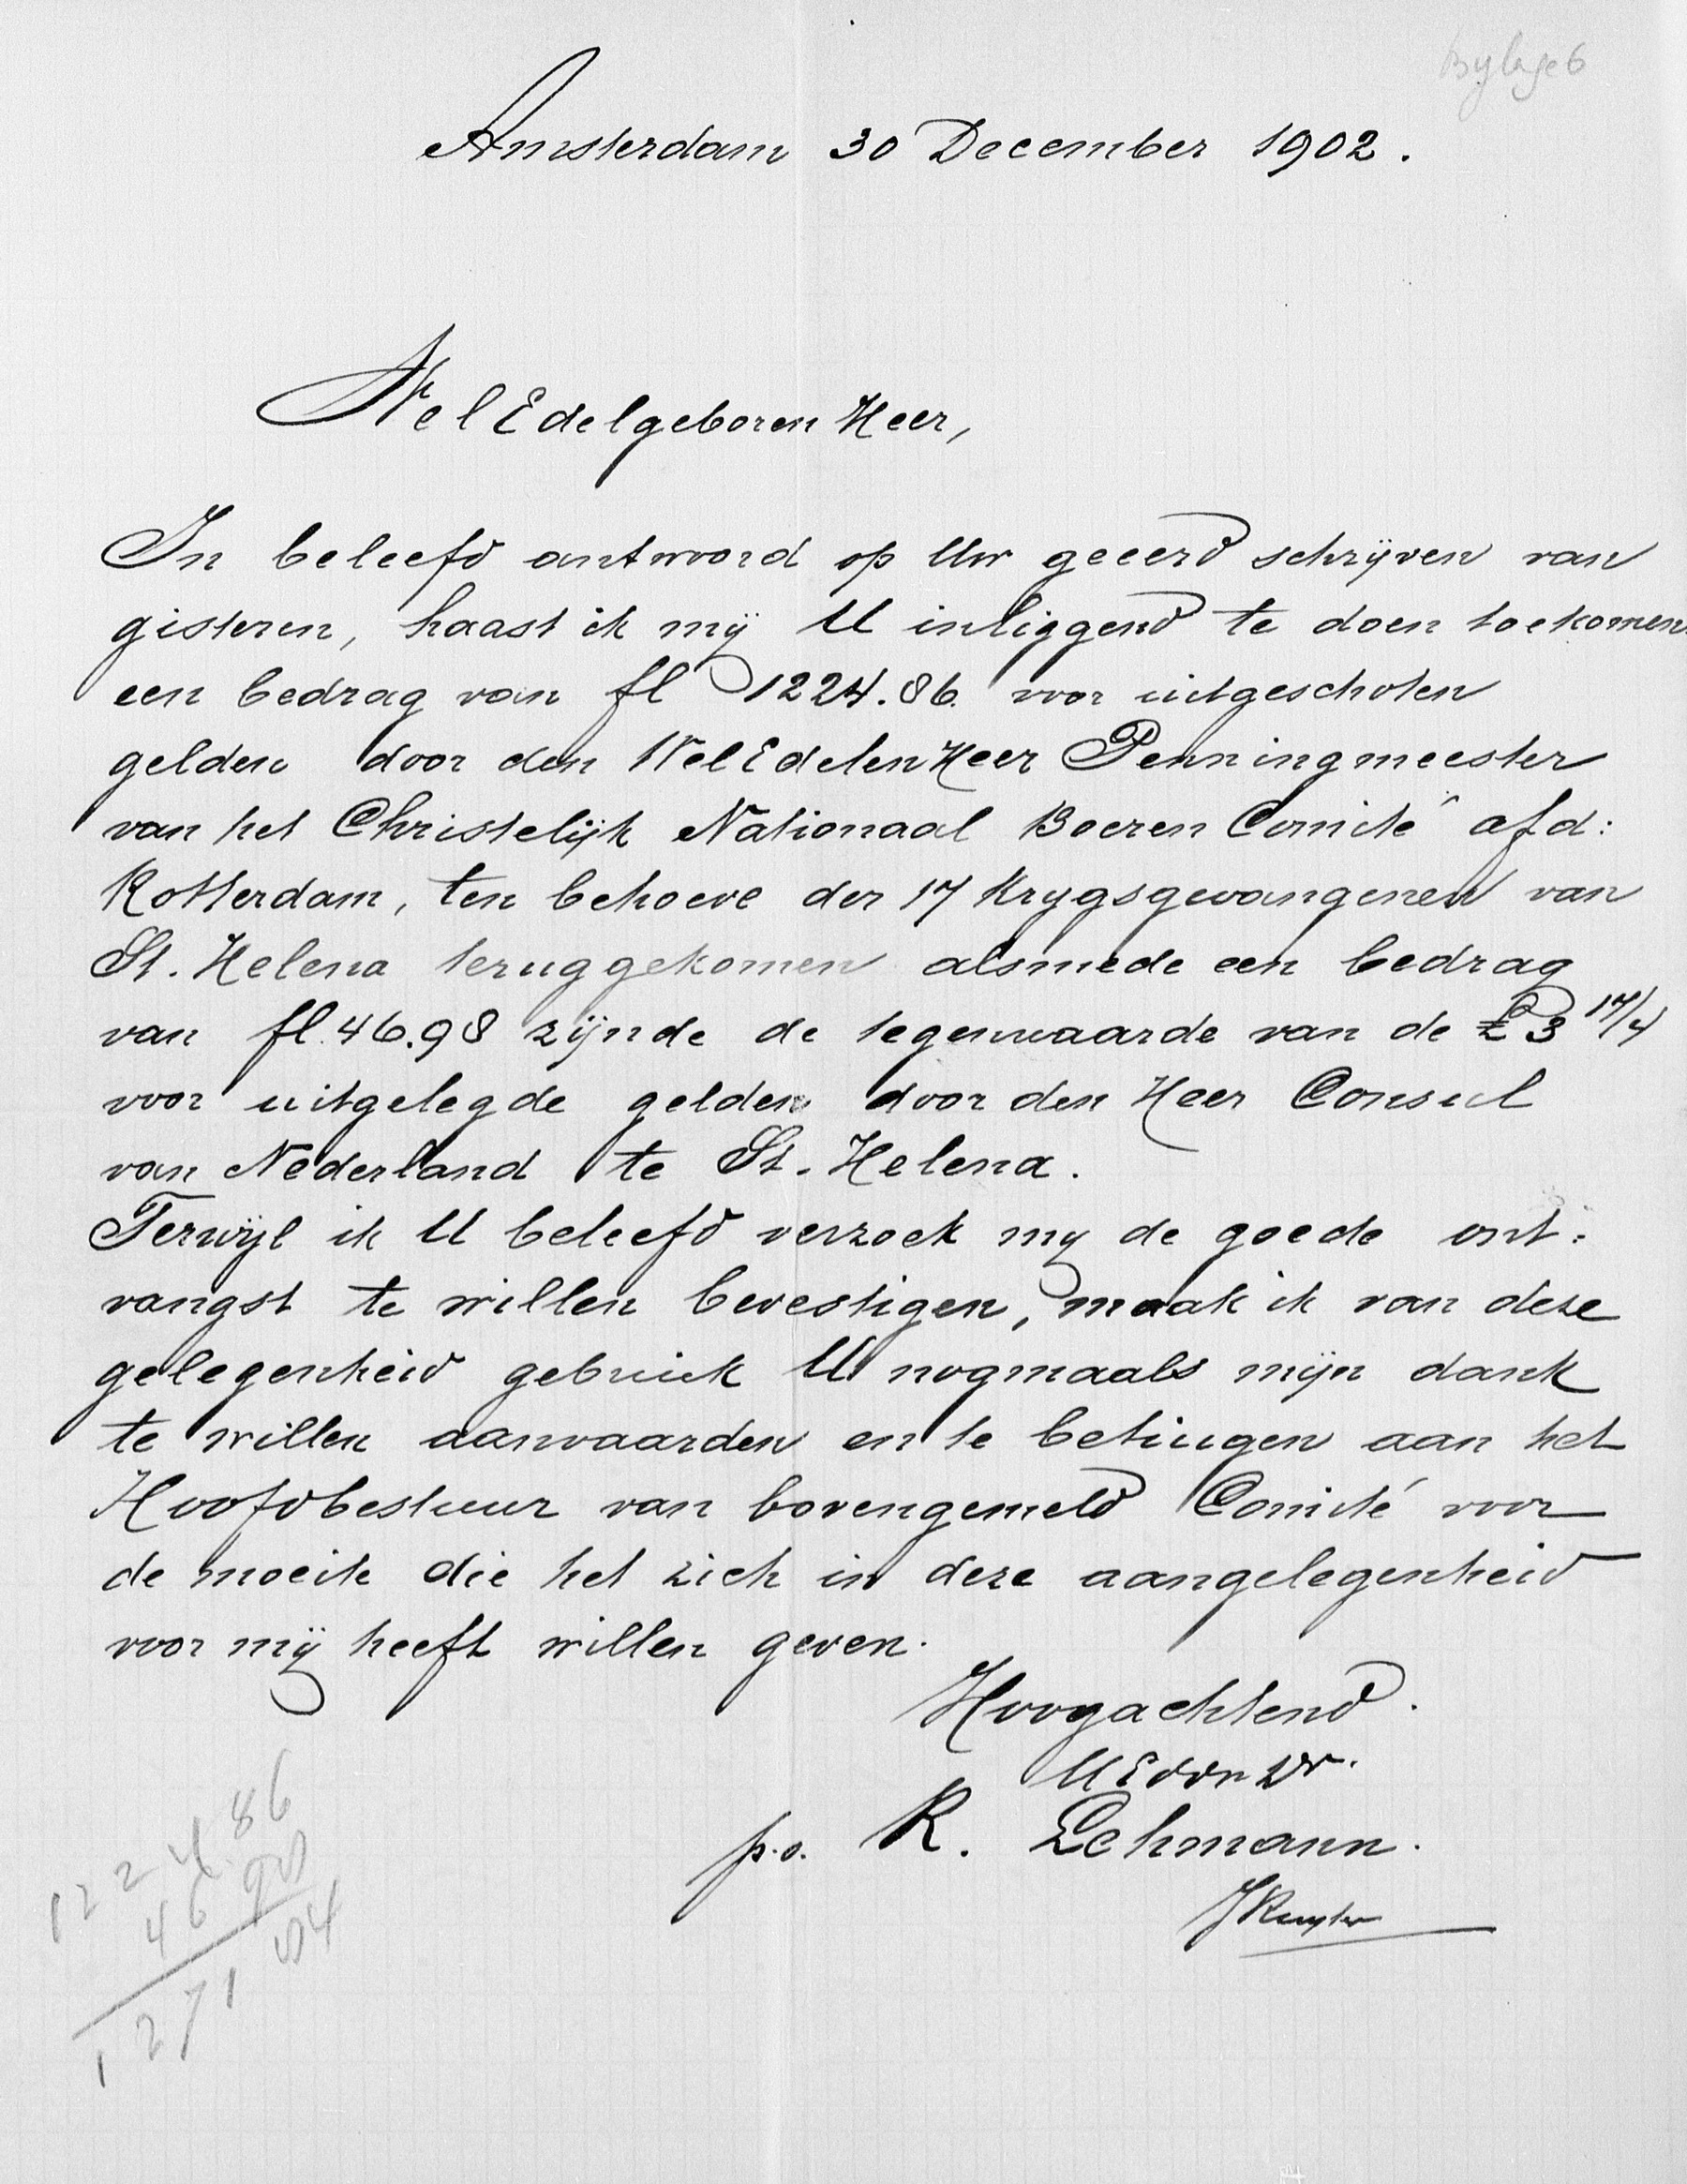 Bylage 6
Amsterdam 30 December 1902.
WelEdelgeboren Heer,
In beleefd antwoord op Uw geeerd schrijven van
gisteren, haast ik mij U inliggend te doen toekomen
een bedrag van fl 1224.86. voor uitgeschoten
gelden door den WelEdelen Heer Penningmeester
van het Christelijk Nationaal Boeren Comité afd:
Rotterdam, ten behoeve der 17 Krygsgevangenen van
St. Helena teruggekomen alsmede een bedrag
van fl. 46.98 zijnde de tegenwaarde van de £ 3 17/4
voor uitgelegde gelden door den Heer Consul
van Nederland te St. Helena.
Terwijl ik U beleefd verzoek my de goede ont:
vangst te willen bevestigen, maak ik van deze
gelegenheid gebruik U nogmaals mijn dank
te willen aanvaarden en te betuigen aan het
Hoofdbestuur van bovengemeld Comité voor
de moeite die het zich in deze aangelegenheid
voor mij heeft willen geven.
Hoogachtend.
UEd dn Dr.
p.o. R. Lehmann.
1224.86
46 98
1271 84